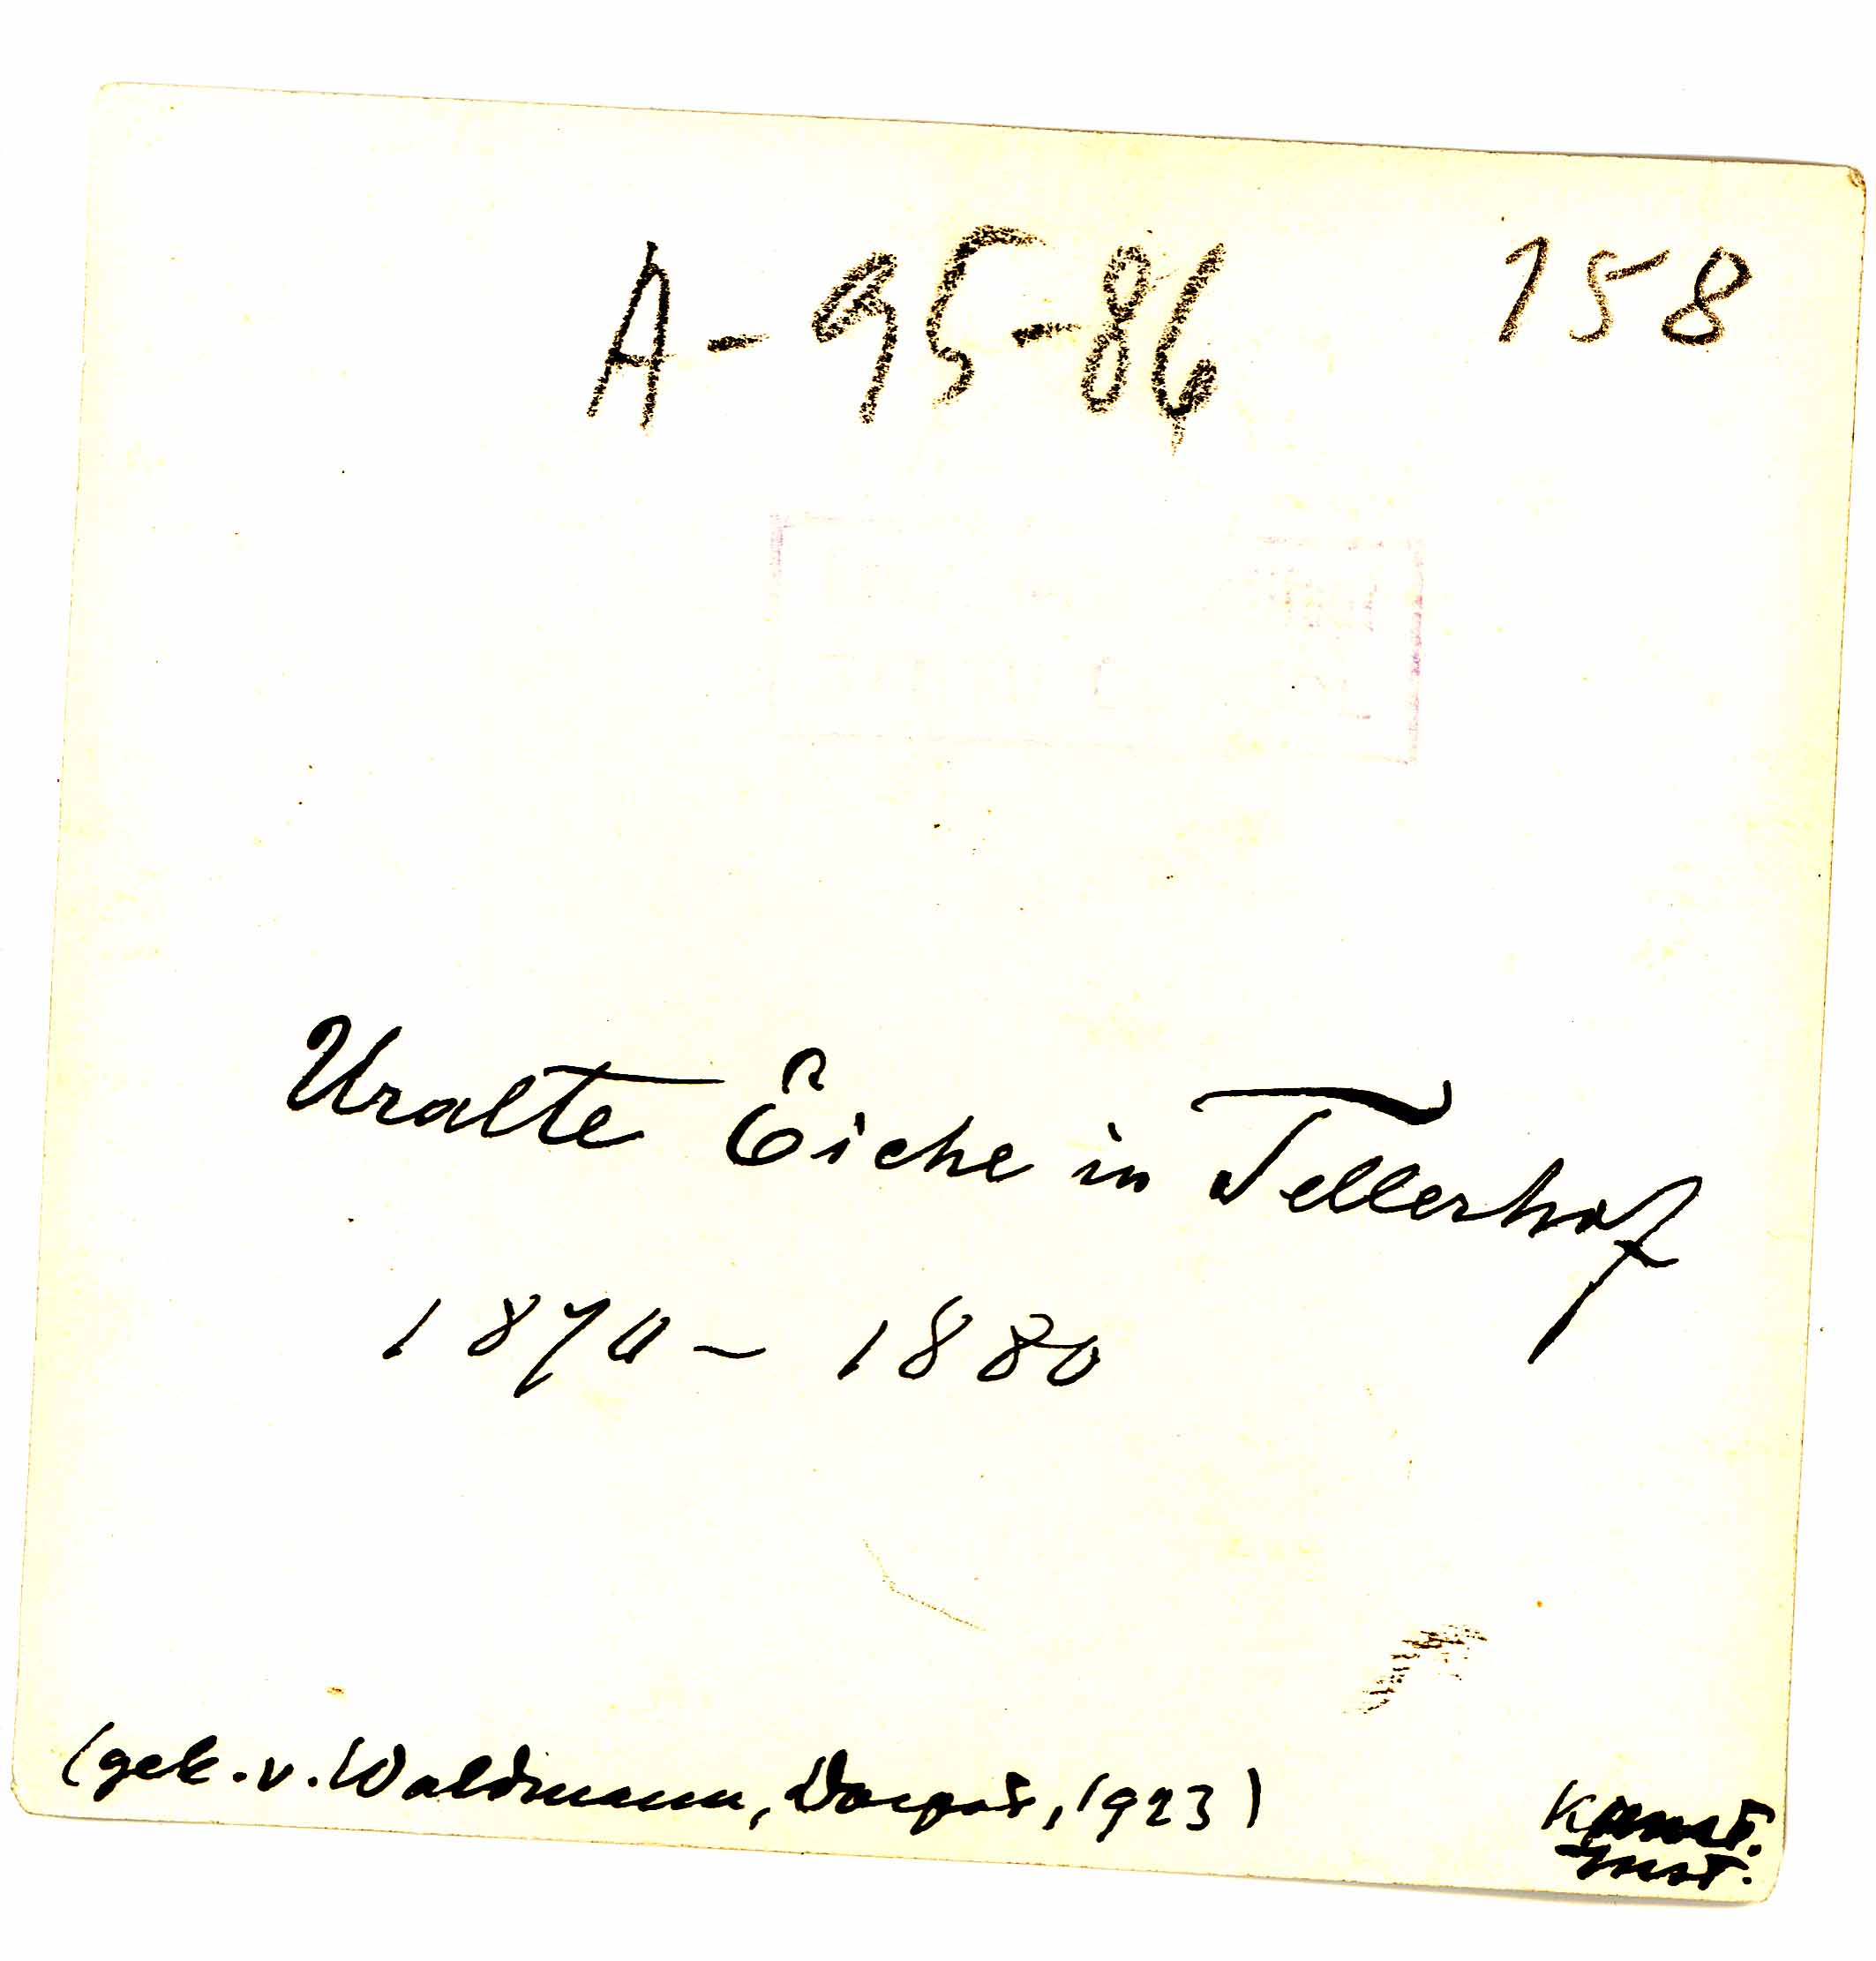 A-95-86 158
Uralte Eiche in Tellerhof
1870 - 1880
(gek. v. Waldmann, Dorpat, 1923)
Kunst.
Inst.